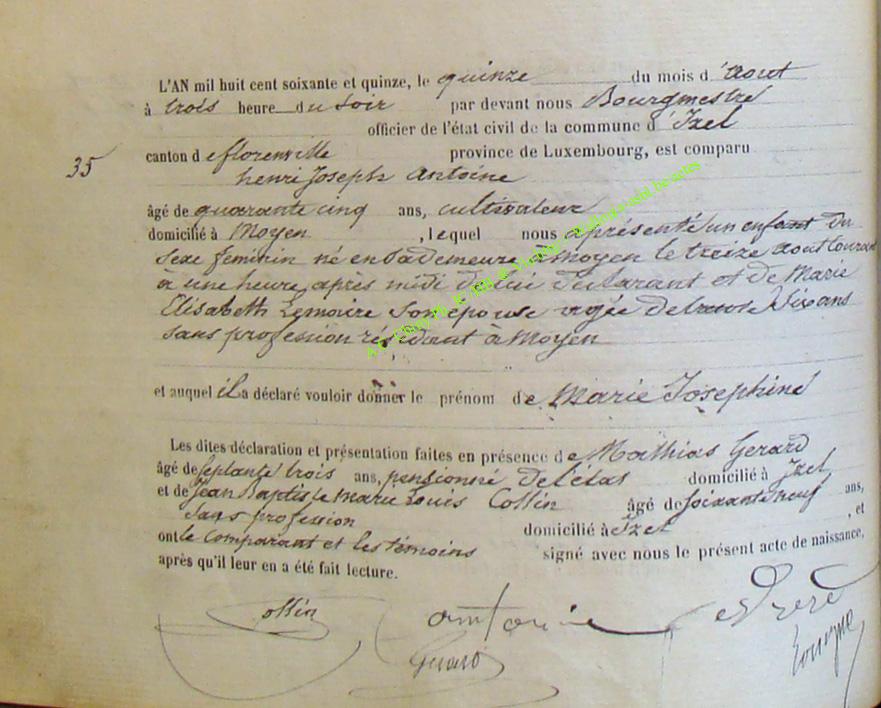 L'AN mil huit cent soixante et quinze, le quinze du mois d'Aout
à trois heure du soir par devant nous Bourgmestre
officier de l'état civil de la commune d'Izel
35
canton de florenville province de Luxembourg, est comparu
henri Joseph Antoine
âgé de quarante cinq ans, cultivateur
domicilié à Moyen , lequel nous a présenté un enfant du
sexe feminin né en sa demeure à Moyen le treize aout courant
à une heure après midi de lui déclarant et de Marie
Elisabeth Lemaire son épouse agée de trente six ans
sans profession résidant à Moyen
et auquel il a déclaré vouloir donner le prénom de Marie Josephine
Les dites déclaration et présentation faites en présence de Mathias Gerard
âgé de septante trois ans, pensionné de l'état domicilié à Izel
et de Jean Baptiste Marie Louis Collin âgé de soixante neuf ans,
sans profession domicilié à Izel , et
ont le comparant et les témoins signé avec nous le présent acte de naissance,
après qu'il leur en a été fait lecture.
Collin Antoine
Gerard